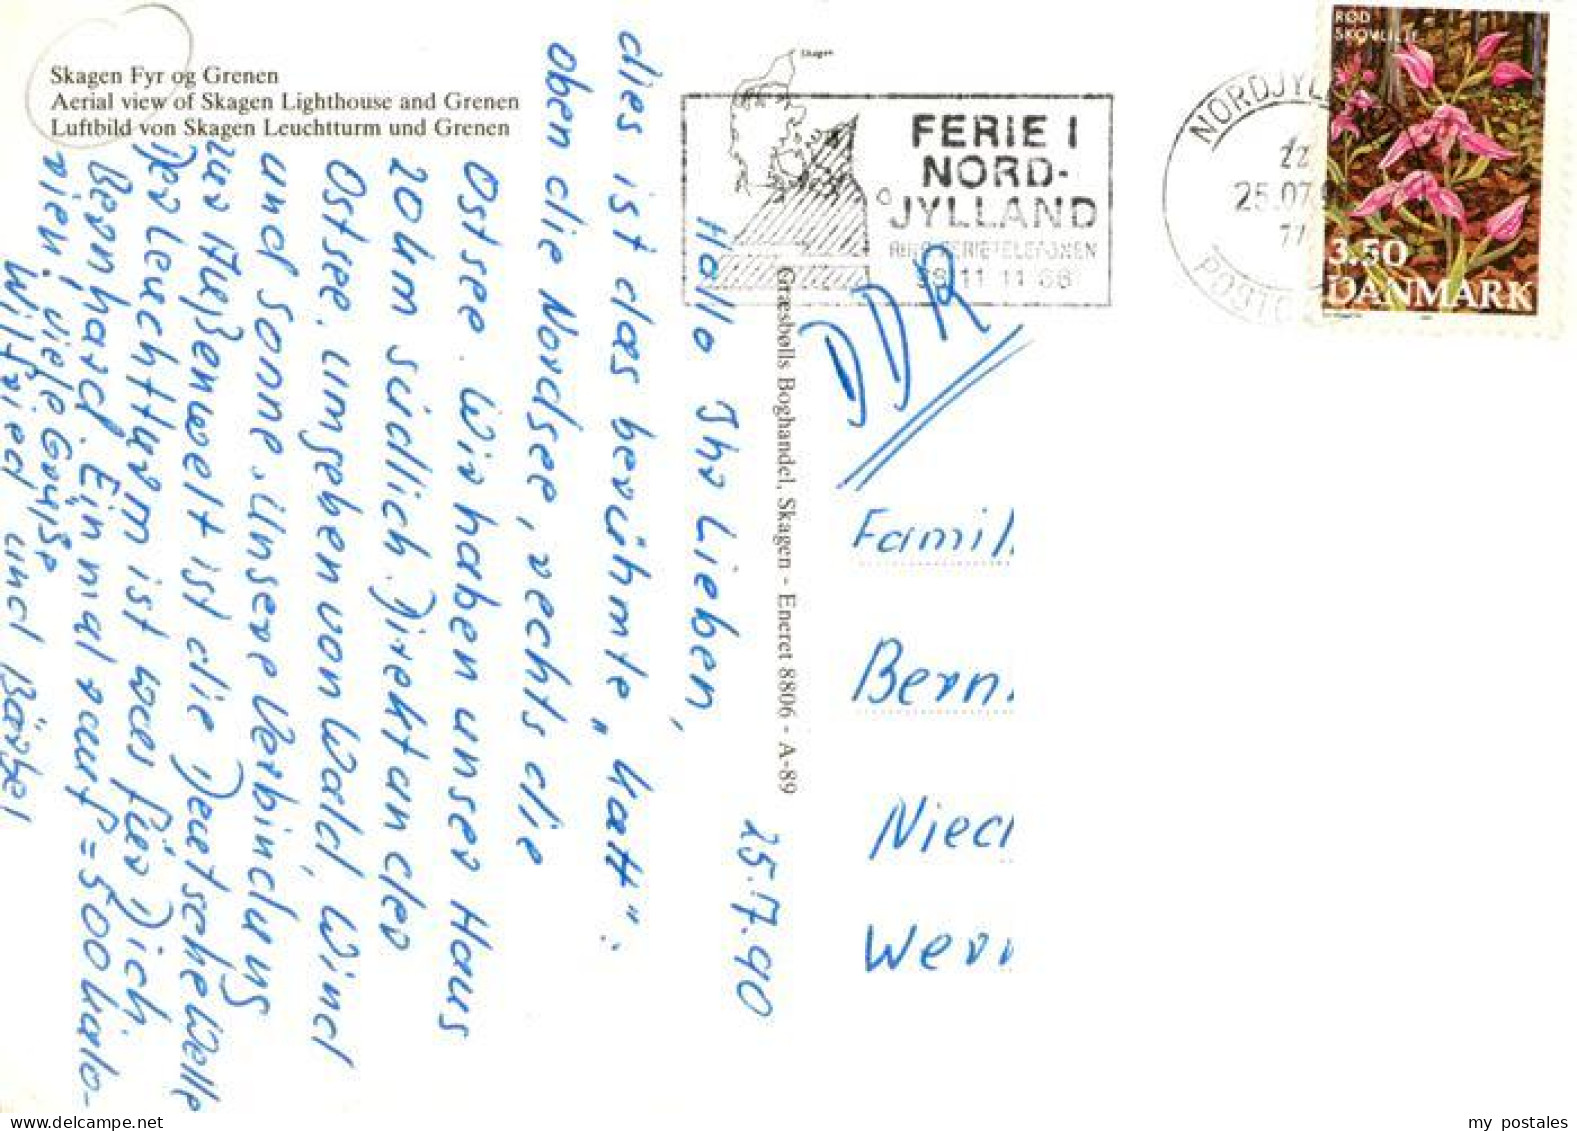 Skagen Fyr og Grenen
Aerial view of Skagen Lighthouse and Grenen
Luftbild von Skagen Leuchtturm und Grenen
25.7.90
Hallo Ihr Lieben,
dies ist das berühmte „Katt":
oben die Nordsee, rechts die
Ostsee. Wir haben unser Haus
20 km südlich. Direkt an der
Ostsee, umgeben von Wald, Wind
und Sonne. Unsere Verbindung
zur Außenwelt ist die Deutsche Welle
Der Leuchtturm ist was für Dich
Bernhard. Einmal rauf = 500 Kalo-
rien. Viele Grüße
Wilfried und Bärbel
Græsbølls Boghandel, Skagen - Eneret 8806 - A-89
Skagen
FERIE I
NORD-
JYLLAND
98 11 11 66
NORDJYL
22
25.07.9
POSTC
RØD
SKOVLILJE
3.50
DANMARK
DDR
Famil
Bern
Nied
Wern
my postales